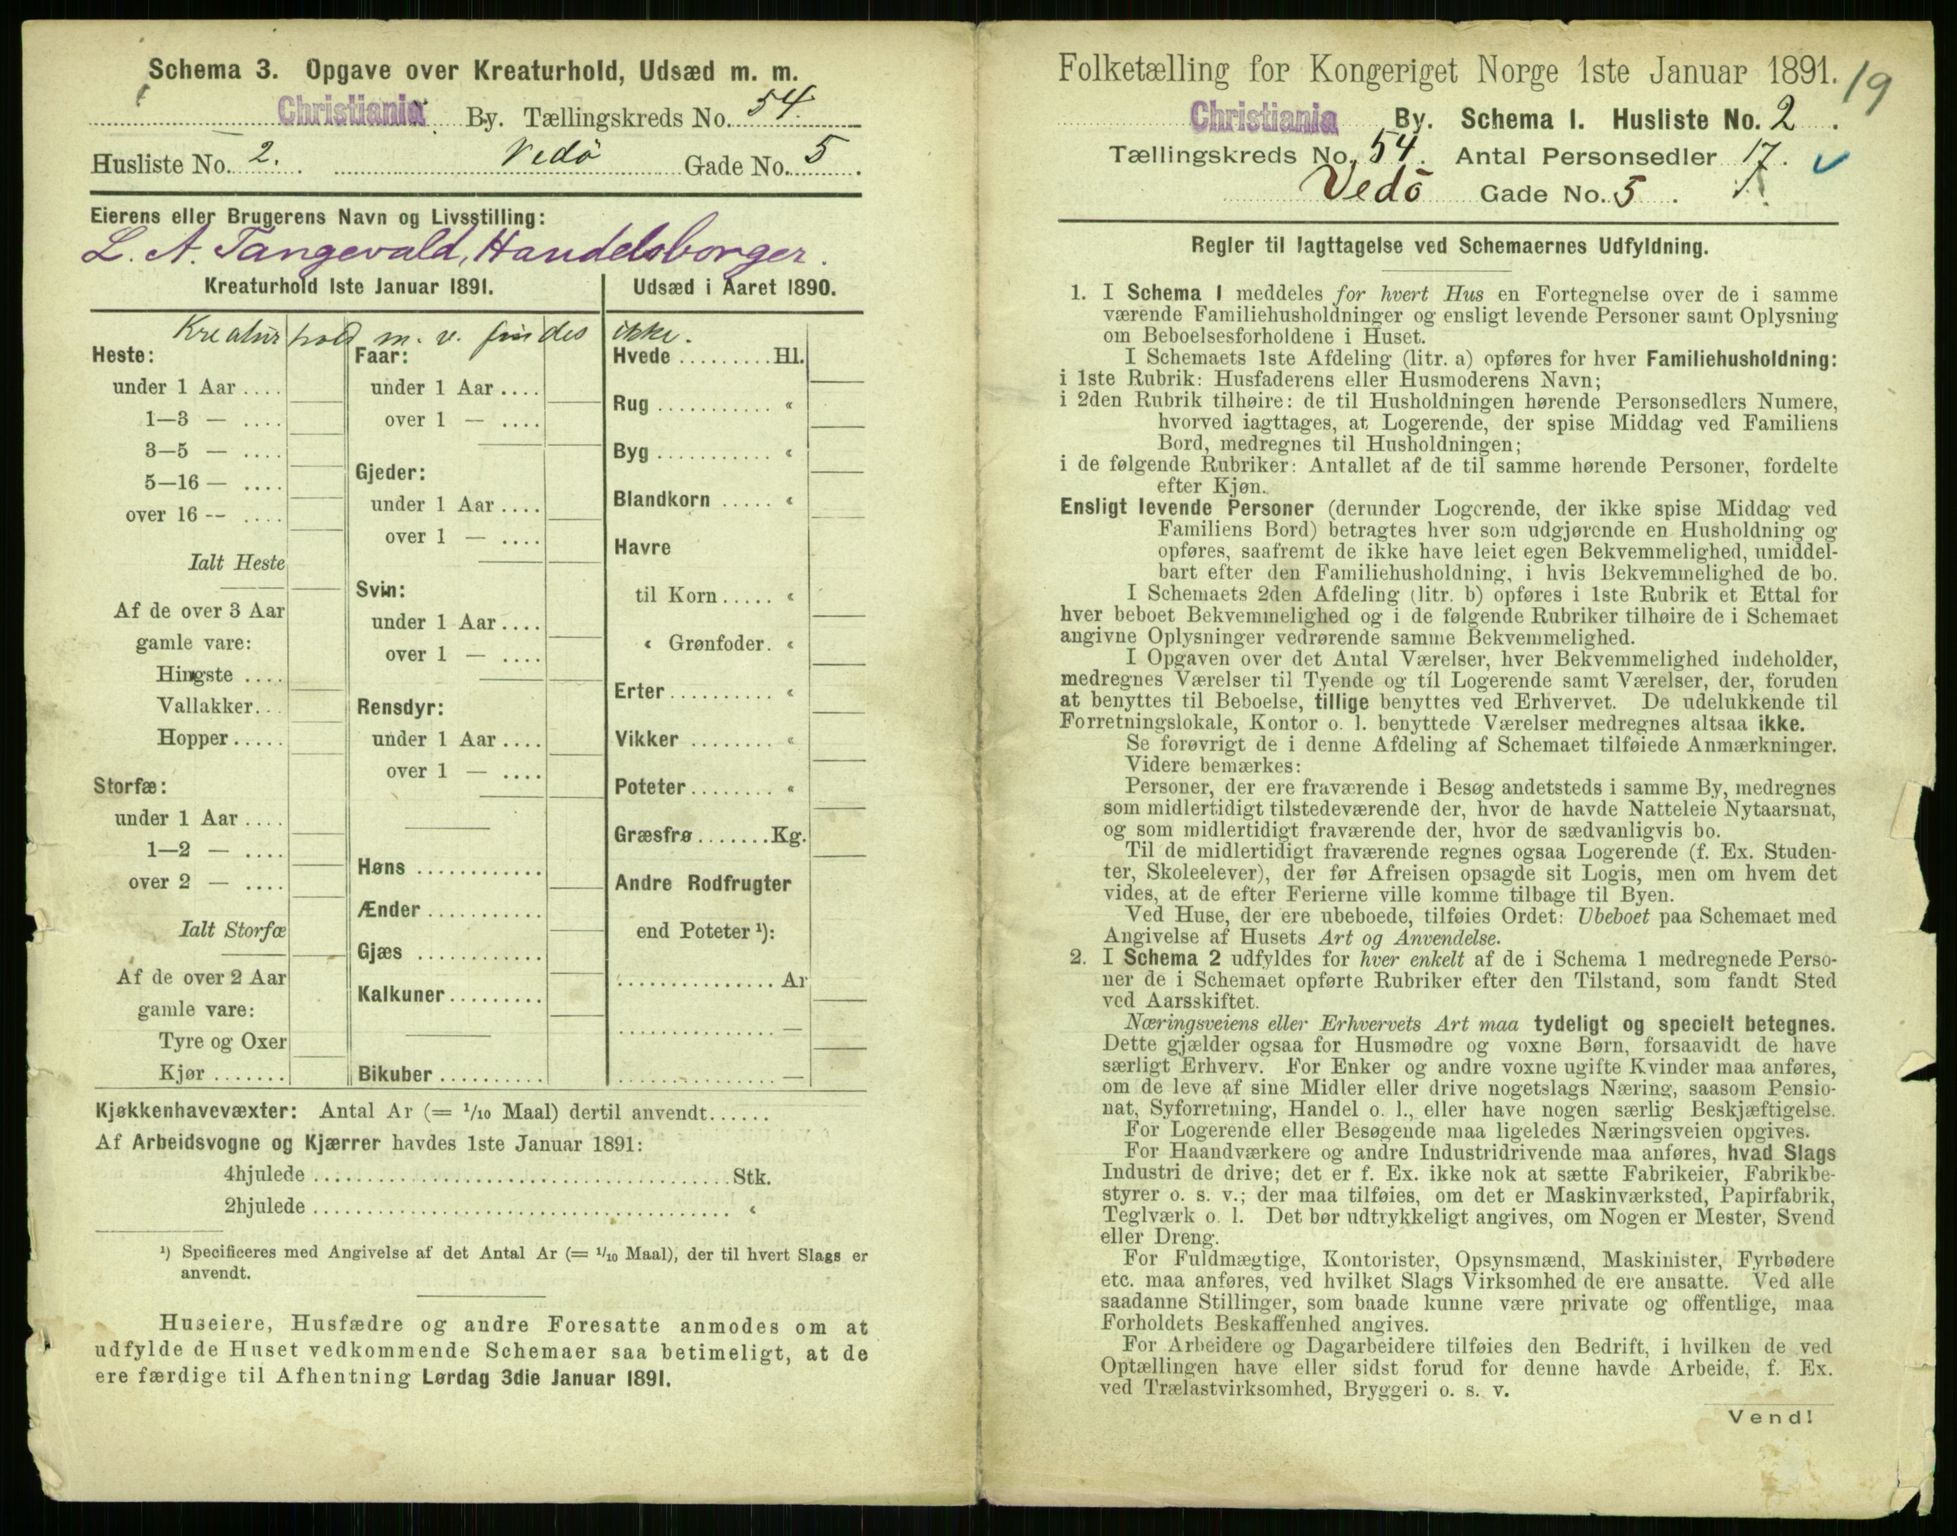 Schema 3. Opgave over Kreaturhold, Udsæd m. m.
Christiania By. Tællingskreds No. 54.
Husliste No. 2. Vedö Gade No. 5.
Eierens eller Brugerens Navn og Livsstilling:
L. A. Tangevald, Handelsborger.
Kreaturhold 1ste Januar 1891.
Udsæd i Aaret 1890.
Kreaturhold m. v. findes ikke.
Heste:
under 1 Aar ....
1—3 — ....
3—5 — ....
5—16 — ....
over 16 -- ....
Ialt Heste
Af de over 3 Aar
gamle vare:
Hingste ....
Vallakker...
Hopper.....
Storfæ:
under 1 Aar ....
1—2 — ....
over 2 — ....
Ialt Storfæ
Af de over 2 Aar
gamle vare:
Tyre og Oxer
Kjør .......
Faar:
under 1 Aar ....
over 1 — ....
Gjeder:
under 1 Aar ....
over 1 — ....
Svin:
under 1 Aar ....
over 1 — ....
Rensdyr:
under 1 Aar ....
over 1 — ....
Høns ............
Ænder ...........
Gjæs ............
Kalkuner.........
Bikuber ..........
Hvede .........Hl.
Rug ........... «
Byg ........... «
Blandkorn ..... «
Havre
til Korn ..... «
« Grønfoder. «
Erter.......... «
Vikker ........ «
Poteter........ «
Græsfrø .......Kg.
Andre Rodfrugter
end Poteter ¹):
............... Ar
............... —
............... —
Kjøkkenhavevæxter: Antal Ar (= ¹/₁₀ Maal) dertil anvendt......
Af Arbeidsvogne og Kjærrer havdes 1ste Januar 1891:
4hjulede ........................................Stk.
2hjulede ........................................ «
¹) Specificeres med Angivelse af det Antal Ar (= ¹/₁₀ Maal), der til hvert Slags er
anvendt.
Huseiere, Husfædre og andre Foresatte anmodes om at
udfylde de Huset vedkommende Schemaer saa betimeligt, at de
ere færdige til Afhentning Lørdag 3die Januar 1891.
Folketælling for Kongeriget Norge 1ste Januar 1891. 19
Christiania By. Schema I. Husliste No. 2.
Tællingskreds No. 54. Antal Personsedler 17.
Vedö Gade No. 5.
Regler til Iagttagelse ved Schemaernes Udfyldning.
1. I Schema I meddeles for hvert Hus en Fortegnelse over de i samme
værende Familiehusholdninger og ensligt levende Personer samt Oplysning
om Beboelsesforholdene i Huset.
I Schemaets 1ste Afdeling (litr. a) opføres for hver Familiehusholdning:
i 1ste Rubrik: Husfaderens eller Husmoderens Navn;
i 2den Rubrik tilhøire: de til Husholdningen hørende Personsedlers Numere,
hvorved iagttages, at Logerende, der spise Middag ved Familiens
Bord, medregnes til Husholdningen;
i de følgende Rubriker: Antallet af de til samme hørende Personer, fordelte
efter Kjøn.
Ensligt levende Personer (derunder Logerende, der ikke spise Middag ved
Familiens Bord) betragtes hver som udgjørende en Husholdning og
opføres, saafremt de ikke have leiet egen Bekvemmelighed, umiddel-
bart efter den Familiehusholdning, i hvis Bekvemmelighed de bo.
I Schemaets 2den Afdeling (litr. b) opføres i 1ste Rubrik et Ettal for
hver beboet Bekvemmelighed og i de følgende Rubriker tilhøire de i Schemaet
angivne Oplysninger vedrørende samme Bekvemmelighed.
I Opgaven over det Antal Værelser, hver Bekvemmelighed indeholder,
medregnes Værelser til Tyende og til Logerende samt Værelser, der, foruden
at benyttes til Beboelse, tillige benyttes ved Erhvervet. De udelukkende til
Forretningslokale, Kontor o. l. benyttede Værelser medregnes altsaa ikke.
Se forøvrigt de i denne Afdeling af Schemaet tilføiede Anmærkninger.
Videre bemærkes:
Personer, der ere fraværende i Besøg andetsteds i samme By, medregnes
som midlertidigt tilstedeværende der, hvor de havde Natteleie Nytaarsnat,
og som midlertidigt fraværende der, hvor de sædvanligvis bo.
Til de midlertidigt fraværende regnes ogsaa Logerende (f. Ex. Studen-
ter, Skoleelever), der før Afreisen opsagde sit Logis, men om hvem det
vides, at de efter Ferierne ville komme tilbage til Byen.
Ved Huse, der ere ubeboede, tilføies Ordet: Ubeboet paa Schemaet med
Angivelse af Husets Art og Anvendelse.
2. I Schema 2 udfyldes for hver enkelt af de i Schema 1 medregnede Perso-
ner de i Schemaet opførte Rubriker efter den Tilstand, som fandt Sted
ved Aarsskiftet.
Næringsveiens eller Erhvervets Art maa tydeligt og specielt betegnes.
Dette gjælder ogsaa for Husmødre og voxne Børn, forsaavidt de have
særligt Erhverv. For Enker og andre voxne ugifte Kvinder maa anføres,
om de leve af sine Midler eller drive nogetslags Næring, saasom Pensio-
nat, Syforretning, Handel o. l., eller have nogen særlig Beskjæftigelse.
For Logerende eller Besøgende maa ligeledes Næringsveien opgives.
For Haandværkere og andre Industridrivende maa anføres, hvad Slags
Industri de drive; det er f. Ex. ikke nok at sætte Fabrikeier, Fabrikbe-
styrer o. s. v.; der maa tilføies, om det er Maskinværksted, Papirfabrik,
Teglværk o. l. Det bør udtrykkeligt angives, om Nogen er Mester, Svend
eller Dreng.
For Fuldmægtige, Kontorister, Opsynsmænd, Maskinister, Fyrbødere
etc. maa anføres, ved hvilket Slags Virksomhed de ere ansatte. Ved alle
saadanne Stillinger, som baade kunne være private og offentlige, maa
Forholdets Beskaffenhed angives.
For Arbeidere og Dagarbeidere tilføies den Bedrift, i hvilken de ved
Optællingen have eller sidst forud for denne havde Arbeide, f. Ex.
ved Trælastvirksomhed, Bryggeri o. s. v.
Vend!